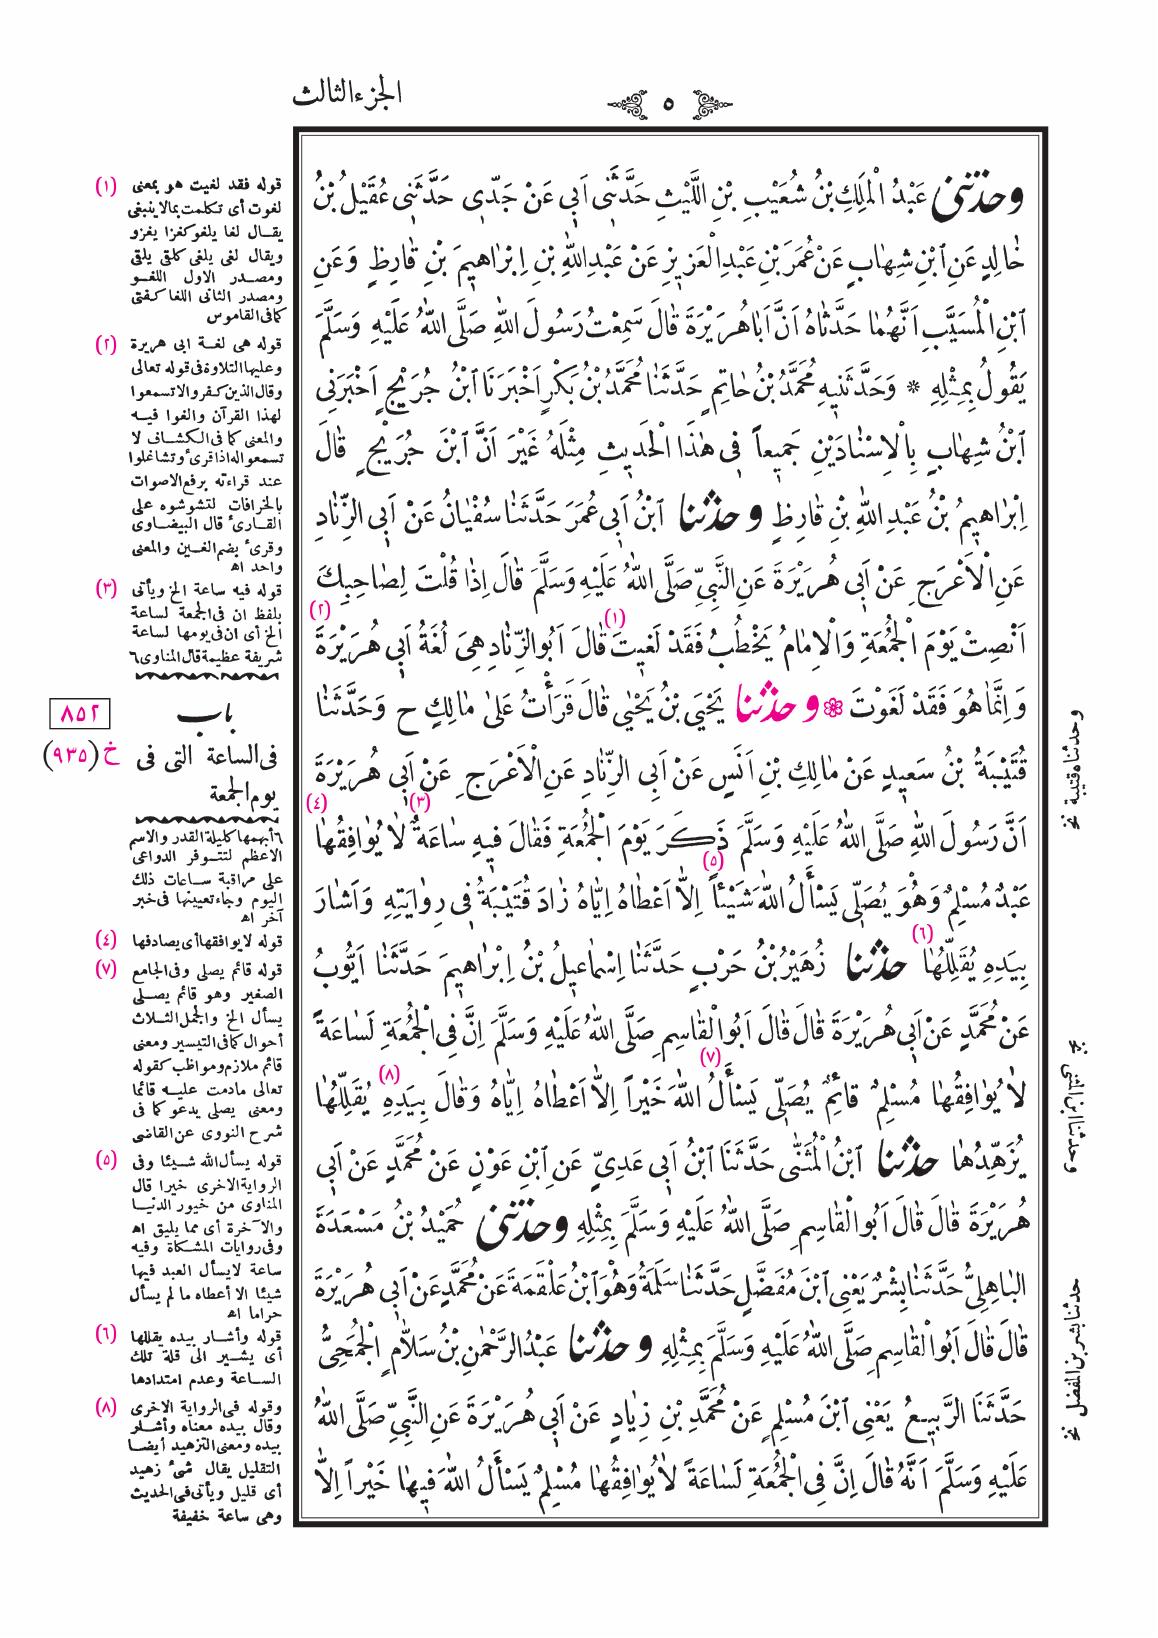 الجزء الثالث
٥
وحدّثنى عَبْدُ الْمَلِكِ بْنُ شُعَيْبِ بْنِ اللَّيْثِ حَدَّثَنٖى اَبٖى عَنْ جَدّٖى حَدَّثَنٖى عُقَيْلُ بْنُ
خَالِدٍ عَنِ ابْنِ شِهَابٍ عَنْ عُمَرَ بْنِ عَبْدِ الْعَزٖيزِ عَنْ عَبْدِ اللّٰهِ بْنِ اِبْرَاهٖيمَ بْنِ قَارِظٍ وَعَنِ
ابْنِ الْمُسَيَّبِ اَنَّهُمَا حَدَّثَاهُ اَنَّ اَبَا هُرَيْرَةَ قَالَ سَمِعْتُ رَسُولَ اللّٰهِ صَلَّى اللّٰهُ عَلَيْهِ وَسَلَّمَ
يَقُولُ بِمِثْلِهِ * وَحَدَّثَنٖيهِ مُحَمَّدُ بْنُ حَاتِمٍ حَدَّثَنَا مُحَمَّدُ بْنُ بَكْرٍ اَخْبَرَنَا ابْنُ جُرَيْجٍ اَخْبَرَنٖى
ابْنُ شِهَابٍ بِالْاِسْنَادَيْنِ جَمٖيعاً فٖى هٰذَا الْحَدٖيثِ مِثْلَهُ غَيْرَ اَنَّ ابْنَ جُرَيْجٍ قَالَ
اِبْرَاهٖيمُ بْنُ عَبْدِ اللّٰهِ بْنِ قَارِظٍ وحدّثنا ابْنُ اَبٖى عُمَرَ حَدَّثَنَا سُفْيَانُ عَنْ اَبِى الزِّنَادِ
عَنِ الْاَعْرَجِ عَنْ اَبٖى هُرَيْرَةَ عَنِ النَّبِىِّ صَلَّى اللّٰهُ عَلَيْهِ وَسَلَّمَ قَالَ اِذَا قُلْتَ لِصَاحِبِكَ
اَنْصِتْ يَوْمَ الْجُمُعَةِ وَالْاِمَامُ يَخْطُبُ فَقَدْ لَغٖيتَ (١) قَالَ اَبُو الزِّنَادِ هِىَ لُغَةُ اَبٖى هُرَيْرَةَ (٢)
وَاِنَّمَا هُوَ فَقَدْ لَغَوْتَ ❁ وحدّثنا يَحْيَى بْنُ يَحْيٰى قَالَ قَرَأْتُ عَلٰى مَالِكٍ ح وَحَدَّثَنَا
قُتَيْبَةُ بْنُ سَعٖيدٍ عَنْ مَالِكِ بْنِ اَنَسٍ عَنْ اَبِى الزِّنَادِ عَنِ الْاَعْرَجِ عَنْ اَبٖى هُرَيْرَةَ
اَنَّ رَسُولَ اللّٰهِ صَلَّى اللّٰهُ عَلَيْهِ وَسَلَّمَ ذَكَرَ يَوْمَ الْجُمُعَةِ فَقَالَ فٖيهِ سَاعَةٌ (٣) لَا يُوَافِقُهَا (٤)
عَبْدٌ مُسْلِمٌ وَهُوَ يُصَلّٖى يَسْأَلُ اللّٰهَ شَيْئاً (٥) اِلَّا اَعْطَاهُ اِيَّاهُ زَادَ قُتَيْبَةُ فٖى رِوَايَتِهِ وَاَشَارَ
بِيَدِهِ يُقَلِّلُهَا (٦) حدّثنا زُهَيْرُ بْنُ حَرْبٍ حَدَّثَنَا اِسْمَاعٖيلُ بْنُ اِبْرَاهٖيمَ حَدَّثَنَا اَيُّوبُ
عَنْ مُحَمَّدٍ عَنْ اَبٖى هُرَيْرَةَ قَالَ قَالَ اَبُو الْقَاسِمِ صَلَّى اللّٰهُ عَلَيْهِ وَسَلَّمَ اِنَّ فِى الْجُمُعَةِ لَسَاعَةً
لَا يُوَافِقُهَا مُسْلِمٌ قَائِمٌ يُصَلّٖى (٧) يَسْأَلُ اللّٰهَ خَيْراً اِلَّا اَعْطَاهُ اِيَّاهُ وَقَالَ بِيَدِهِ (٨) يُقَلِّلُهَا
يُزَهِّدُهَا حدّثنا ابْنُ الْمُثَنّٰى حَدَّثَنَا ابْنُ اَبٖى عَدِىٍّ عَنِ ابْنِ عَوْنٍ عَنْ مُحَمَّدٍ عَنْ اَبٖى
هُرَيْرَةَ قَالَ قَالَ اَبُو الْقَاسِمِ صَلَّى اللّٰهُ عَلَيْهِ وَسَلَّمَ بِمِثْلِهِ وحدّثنى حُمَيْدُ بْنُ مَسْعَدَةَ
الْبَاهِلِىُّ حَدَّثَنَا بِشْرٌ يَعْنِى ابْنَ مُفَضَّلٍ حَدَّثَنَا سَلَمَةُ وَهُوَ ابْنُ عَلْقَمَةَ عَنْ مُحَمَّدٍ عَنْ اَبٖى هُرَيْرَةَ
قَالَ قَالَ اَبُو الْقَاسِمِ صَلَّى اللّٰهُ عَلَيْهِ وَسَلَّمَ بِمِثْلِهِ وحدّثنا عَبْدُ الرَّحْمٰنِ بْنُ سَلَّامٍ الْجُمَحِىُّ
حَدَّثَنَا الرَّبٖيعُ يَعْنِى ابْنَ مُسْلِمٍ عَنْ مُحَمَّدِ بْنِ زِيَادٍ عَنْ اَبٖى هُرَيْرَةَ عَنِ النَّبِىِّ صَلَّى اللّٰهُ
عَلَيْهِ وَسَلَّمَ اَنَّهُ قَالَ اِنَّ فِى الْجُمُعَةِ لَسَاعَةً لَا يُوَافِقُهَا مُسْلِمٌ يَسْأَلُ اللّٰهَ فٖيهَا خَيْراً اِلَّا
وحدثناه قتيبة نخ
وحدثنا ابن المثنى نخ
حدثنا بشر بن المفضل نخ
(١) قوله فقد لغيت هو بمعنى
لغوت أى تكلمت بمالا ينبغى
يقال لغا يلغو كغزا يغزو
ويقال لغى يلغى كلقى يلقى
ومصدر الاول اللغو
ومصدر الثانى اللغا كفتى
كما فى القاموس
(٢) قوله هى لغة ابى هريرة
وعليها التلاوة فى قوله تعالى
وقال الذين كفروا لا تسمعوا
لهذا القرآن والغوا فيه
والمعنى كما فى الكشاف لا
تسمعوا له اذا قرئ وتشاغلوا
عند قراءته برفع الاصوات
بالخرافات لتشوشوه على
القارئ قال البيضاوى
وقرئ بضم الغين والمعنى
واحد اه
(٣) قوله فيه ساعة الخ ويأتى
بلفظ ان فى الجمعة لساعة
الخ أى ان فى يومها لساعة
شريفة عظيمة قال المناوى ٦
٨٥٢
باب
خ (٩٣٥)
فى الساعة التى فى
يوم الجمعة
٦ أبهمها كليلة القدر والاسم
الاعظم لتتوفر الدواعى
على مراقبة ساعات ذلك
اليوم وجاء تعيينها فى خبر
آخر اه
(٤) قوله لا يوافقها أى يصادفها
(٧) قوله قائم يصلى وفى الجامع
الصغير وهو قائم يصلى
يسأل الخ والجمل الثلاث
أحوال كما فى التيسير ومعنى
قائم ملازم ومواظب كقوله
تعالى مادمت عليه قائما
ومعنى يصلى يدعو كما فى
شرح النووى عن القاضى
(٥) قوله يسأل الله شيئا وفى
الرواية الاخرى خيرا قال
المناوى من خيور الدنيا
والآخرة أى مما يليق اه
وفى روايات المشكاة وفيه
ساعة لا يسأل العبد فيها
شيئا الا أعطاه ما لم يسأل
حراما اه
(٦) قوله وأشار بيده يقللها
أى يشير الى قلة تلك
الساعة وعدم امتدادها
(٨) وقوله فى الرواية الاخرى
وقال بيده معناه وأشار
بيده ومعنى التزهيد أيضا
التقليل يقال شئ زهيد
أى قليل ويأتى فى الحديث
وهى ساعة خفيفة